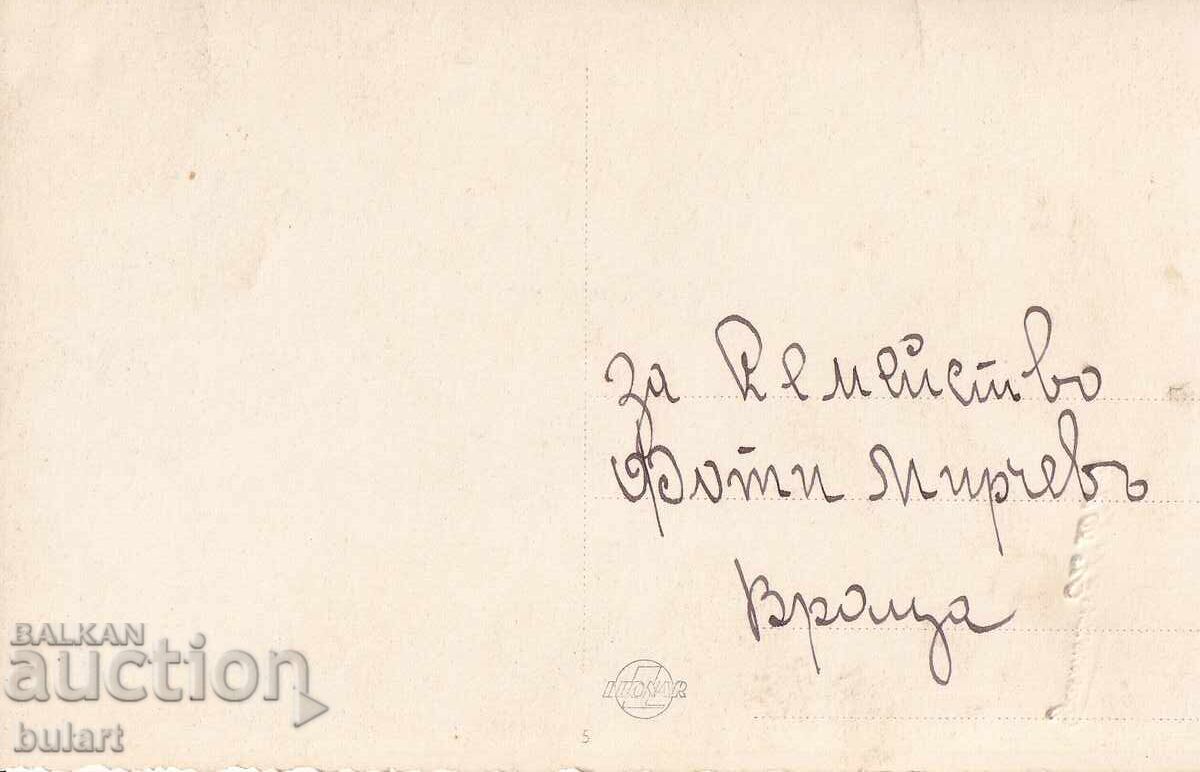 за Семейство
Фоти Мирчевъ
Враца
LEONAR
5
BALKAN
auction
bulart